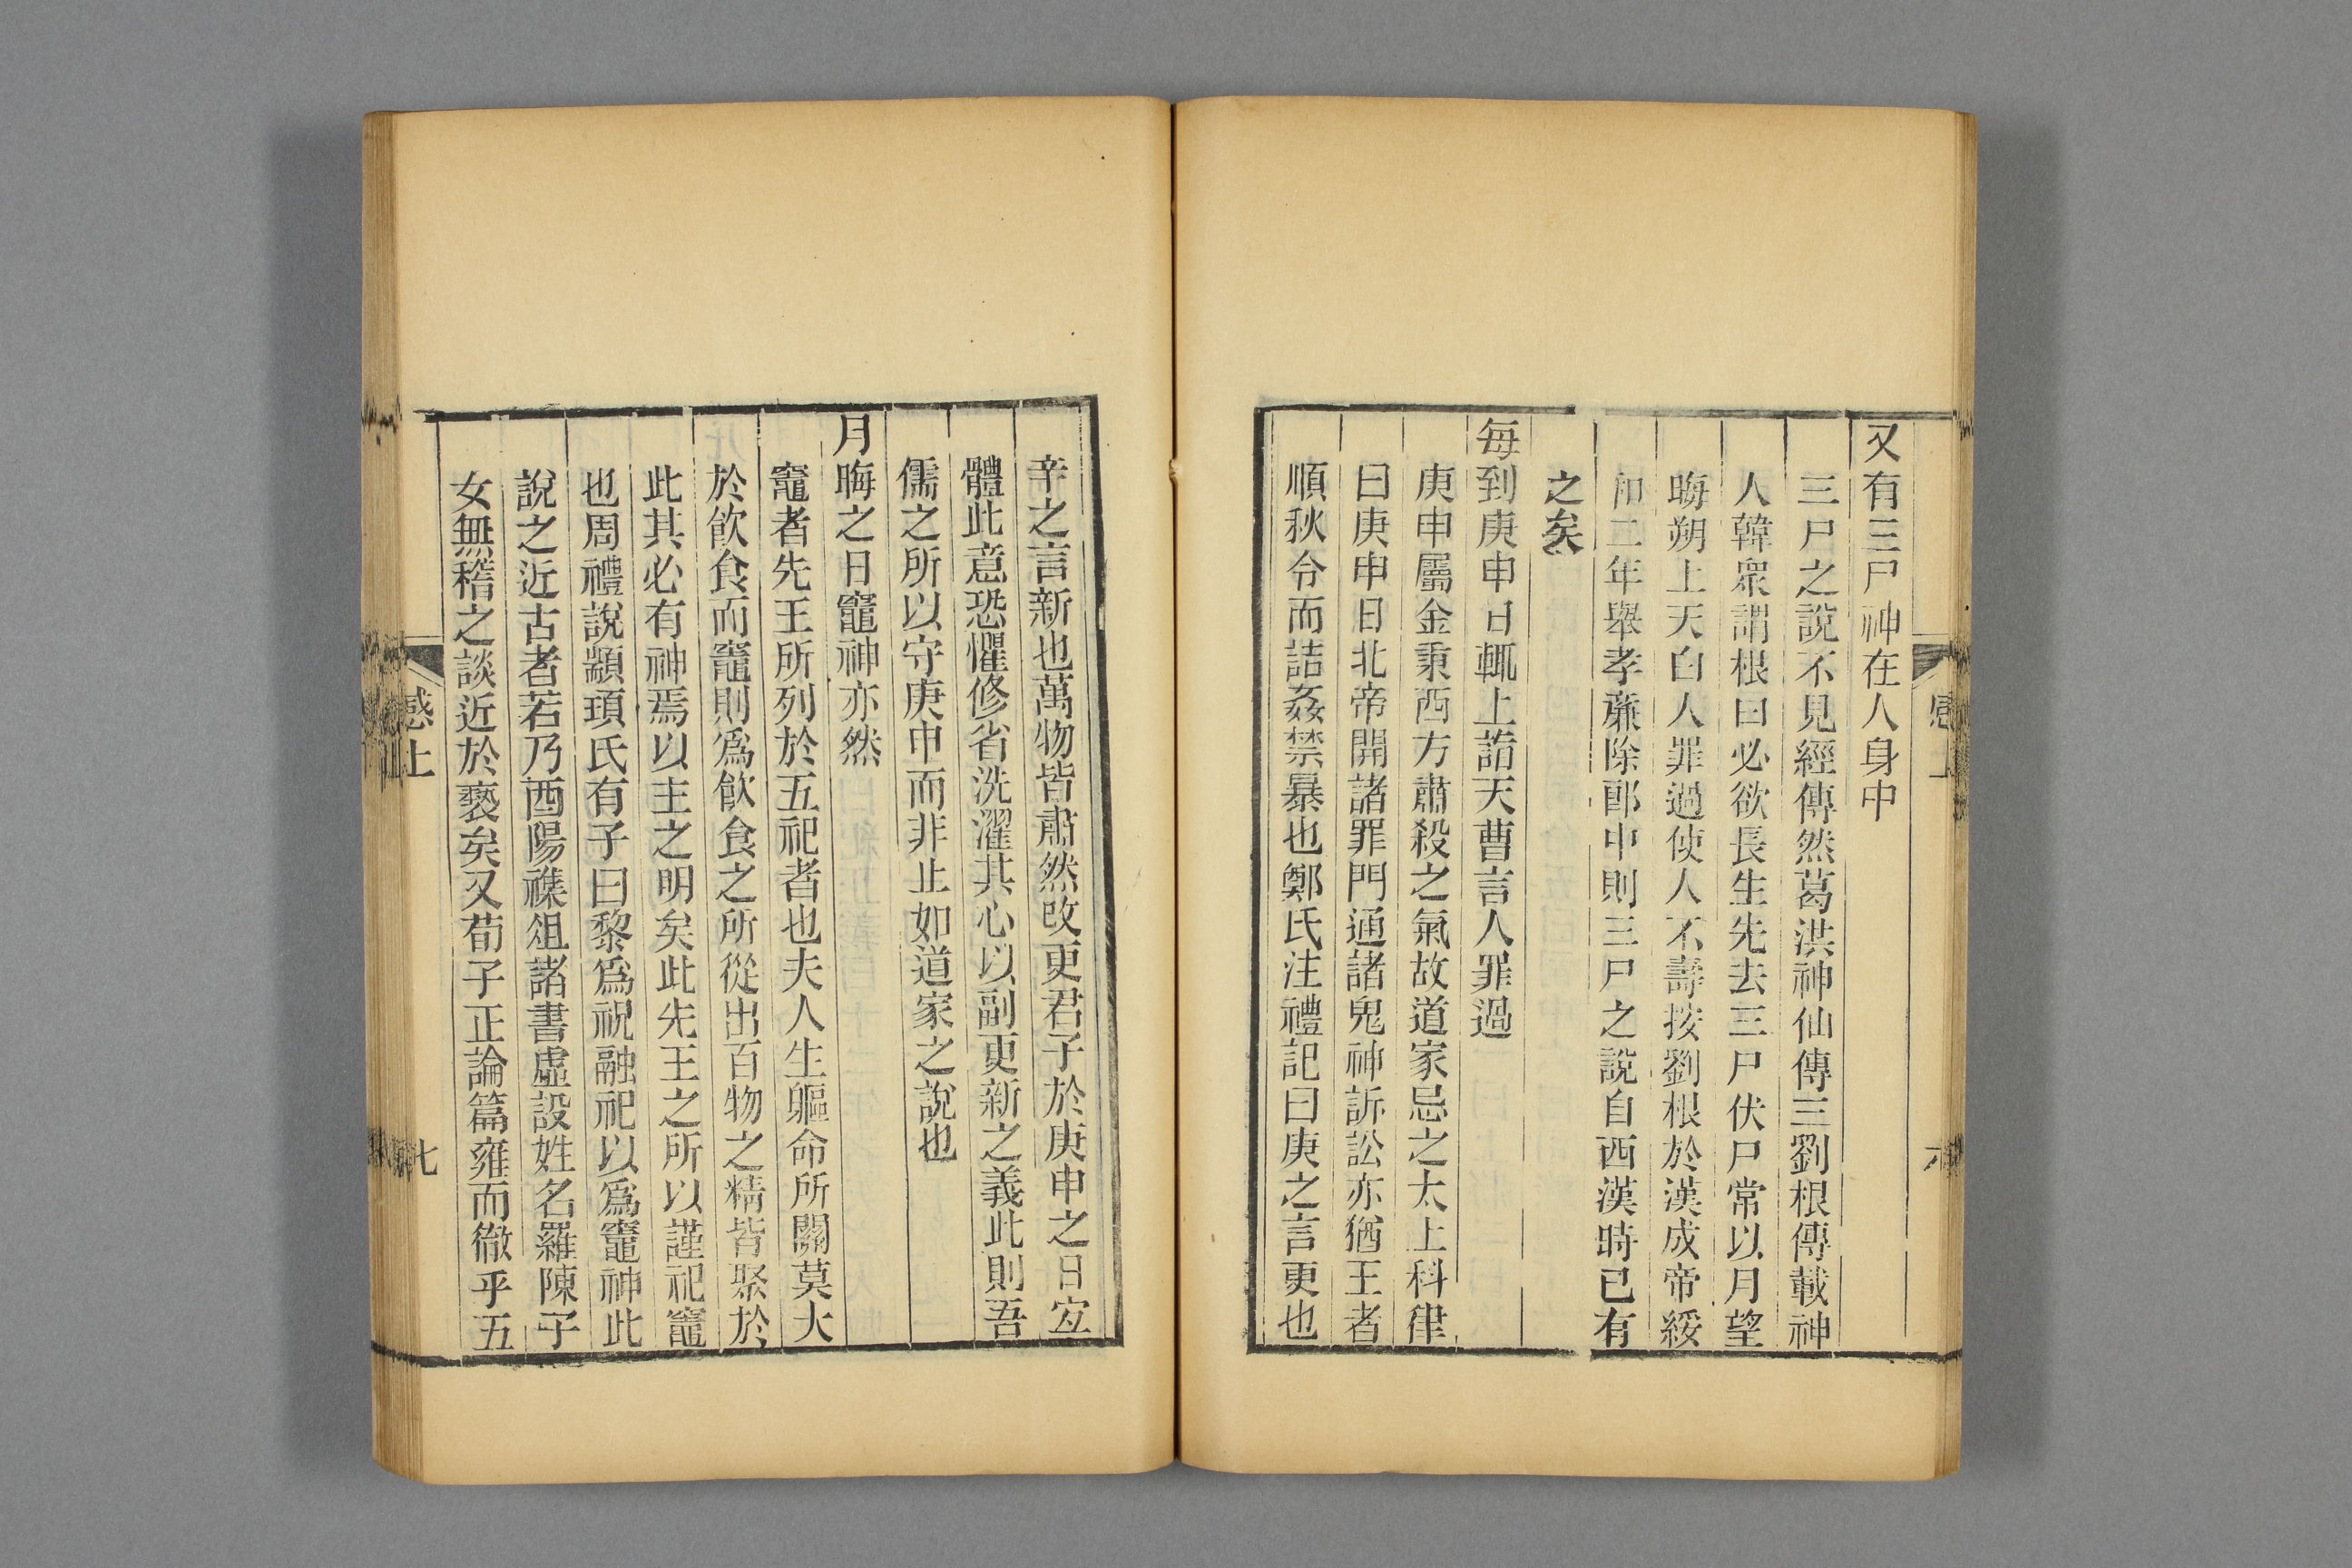 又有三尸神在人身中
三尸之說不見經傳然葛洪神仙傳三劉根傳載神
人韓衆謂根曰必欲長生先去三尸伏尸常以月望
晦朔上天白人罪過使人不壽按劉根於漢成帝綏
和二年舉孝廉除郎中則三尸之說自西漢時已有
之矣
每到庚申日輒上詣天曹言人罪過
庚申屬金秉西方肅殺之氣故道家忌之太上科律
曰庚申日北帝開諸罪門通諸鬼神訴訟亦猶王者
順秋令而詰姦禁暴也鄭氏注禮記曰庚之言更也
辛之言新也萬物皆肅然改更君子於庚申之日宐
體此意恐懼修省洗濯其心以副更新之義此則吾
儒之所以守庚申而非止如道家之說也
月晦之日竈神亦然
竈者先王所列於五祀者也夫人生軀命所關莫大
於飮食而竈則爲飮食之所從出百物之精皆聚於
此其必有神焉以主之明矣此先王之所以謹祀竈
也周禮說顓頊氏有子曰黎爲祝融祀以爲竈神此
說之近古者若乃酉陽襍俎諸書虛設姓名羅陳子
女無稽之談近於褻矣又荀子正論篇雍而徹乎五
感上
七